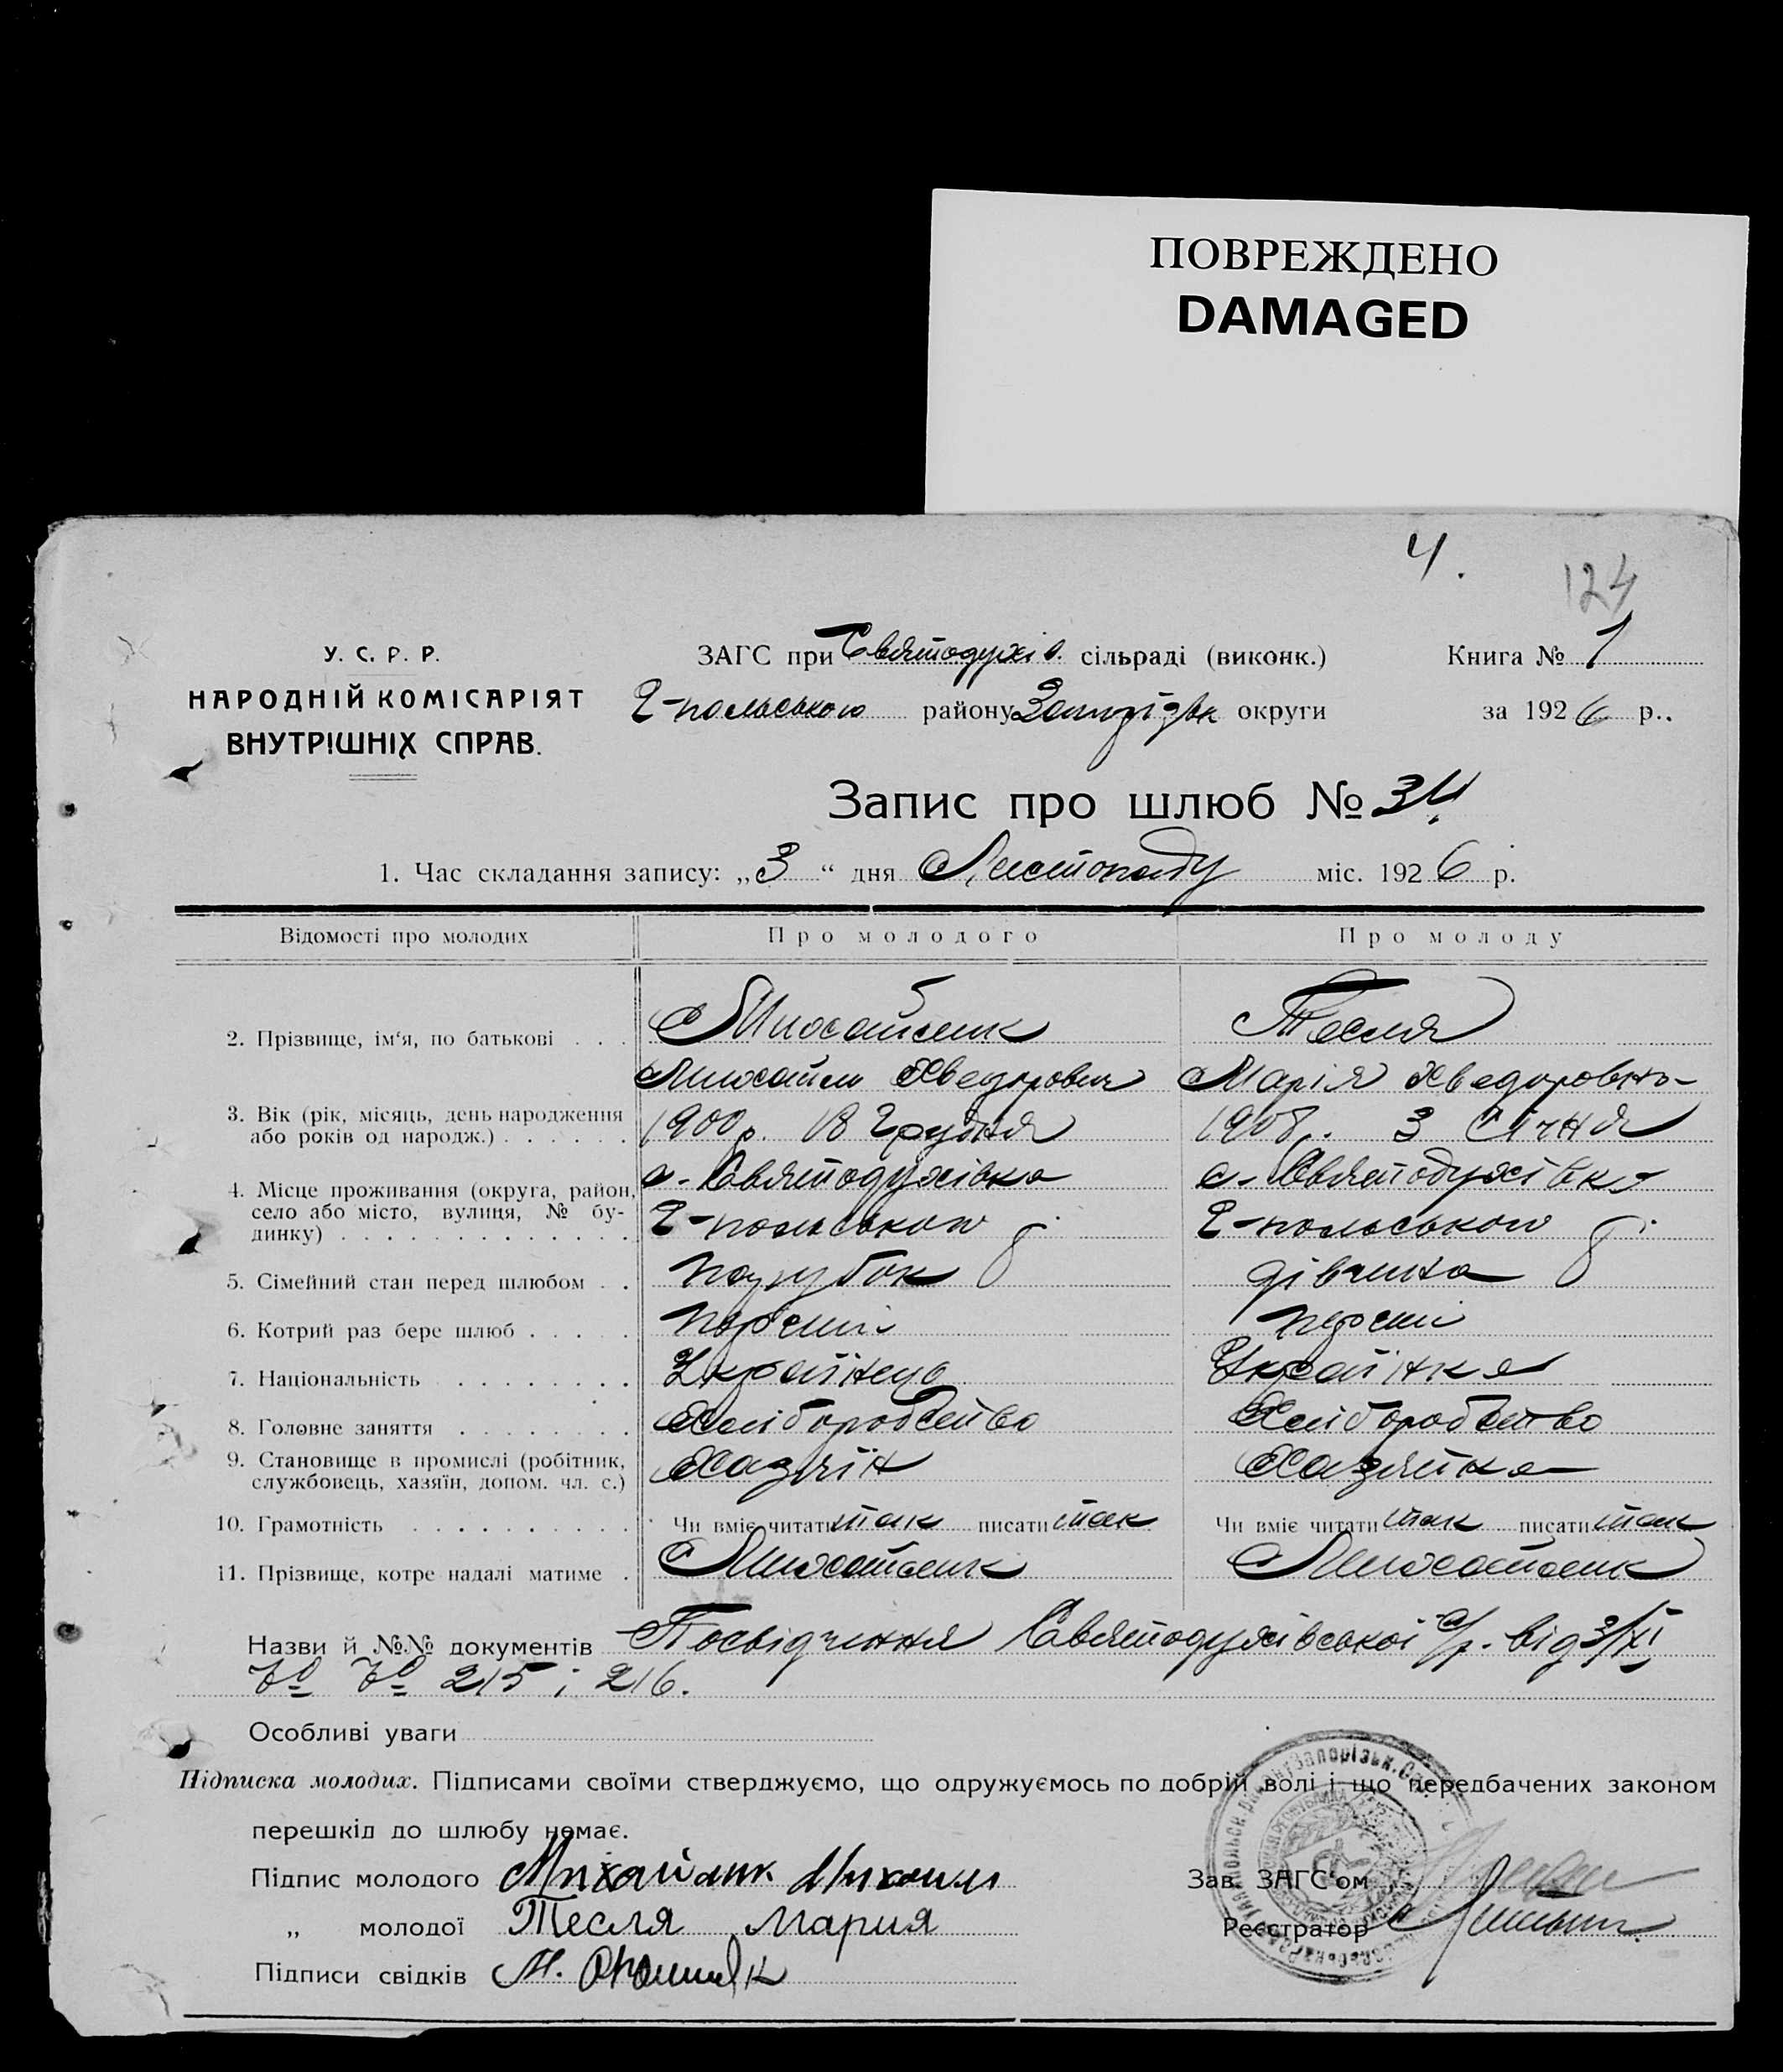 ПОВРЕЖДЕНО
DAMAGED
4.
124
У. С. Р. Р.
НАРОДНІЙ КОМІСАРІЯТ
ВНУТРІШНІХ СПРАВ.
ЗАГС при Святодухів. сільраді (виконк.) Книга № 1
Г-польського району Запорізьк округи за 1926 р..
Запис про шлюб № 34
1. Час складання запису: „3“ дня Листопаду міс. 1926 р.
Відомості про молодих Про молодого Про молоду
2. Прізвище, ім‘я, по батькові . . . Михайлик Тесля
Михайло Хведорович Марія Хведоровна
3. Вік (рік, місяць, день народження або років од народж.) . . . . . . 1900 р. 18 Грудня 1908 р. 3 Січня
4. Місце проживання (округа, район, село або місто, вулиця, № будинку) . . . . с. Святодухівка с. Святодухівка
Г-польського р. Г-польського р.
5. Сімейний стан перед шлюбом . . парубок дівчина
6. Котрий раз бере шлюб . . . . . перший перший
7. Національність . . . . . . . . Українець Українка
8. Головне заняття . . . . . . . . Хліборобство Хліборобство
9. Становище в промислі (робітник, службовець, хазяїн, допом. чл. с.) Хазяїн Хазяйка
10. Грамотність . . . . . . . . . . Чи вміє читати так писати так Чи вміє читати так писати так
11. Прізвище, котре надалі матиме . Михайлик Михайлик
Назви й №№ документів Посвідчення Святодухівської с/р. від 3/XI
№ № 215 і 216.
Особливі уваги
Підписка молодих. Підписами своїми стверджуємо, що одружуємось по добрій волі і що передбачених законом
перешкід до шлюбу немає.
Підпис молодого Михайлик Михаил Зав. ЗАГС‘ом
„ молодої Тесля Мария Реєстратор
Підписи свідків М.